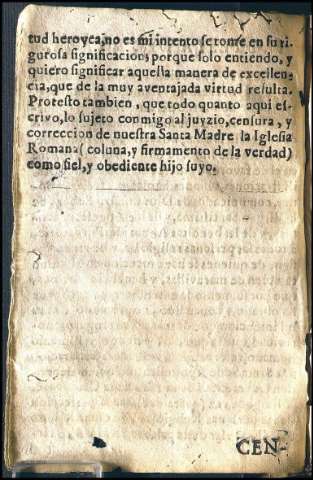 tud heroyca, no es mi intento se tome en su ri-
gurosa significacion; porque solo entiendo, y
quiero significar aquesta manera de excellen-
cia, que de la muy aventajada virtud resulta.
Protesto tambien, que todo quanto aqui es-
crivo, lo sujeto conmigo al juyzio, censura, y
correccion de nuestra Santa Madre la Iglesia
Romana (coluna, y firmamento de la verdad)
como fiel, y obediente hijo suyo.
CEN-